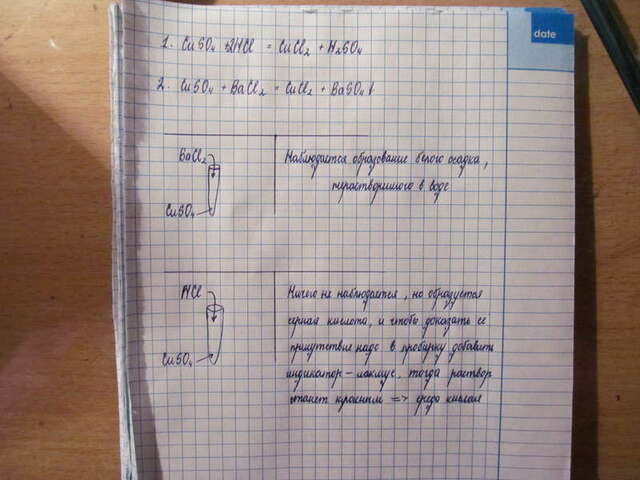 date
1. CuSO4 + 2HCl = CuCl2 + H2SO4
2. CuSO4 + BaCl2 = CuCl2 + BaSO4↓
BaCl2
CuSO4
Наблюдается образование белого осадка,
нерастворимого в воде
HCl
CuSO4
Ничего не наблюдается, но образуется
серная кислота, и чтобы доказать её
присутствие надо в пробирку добавить
индикатор - лакмус, тогда раствор
станет красным => среда кислая